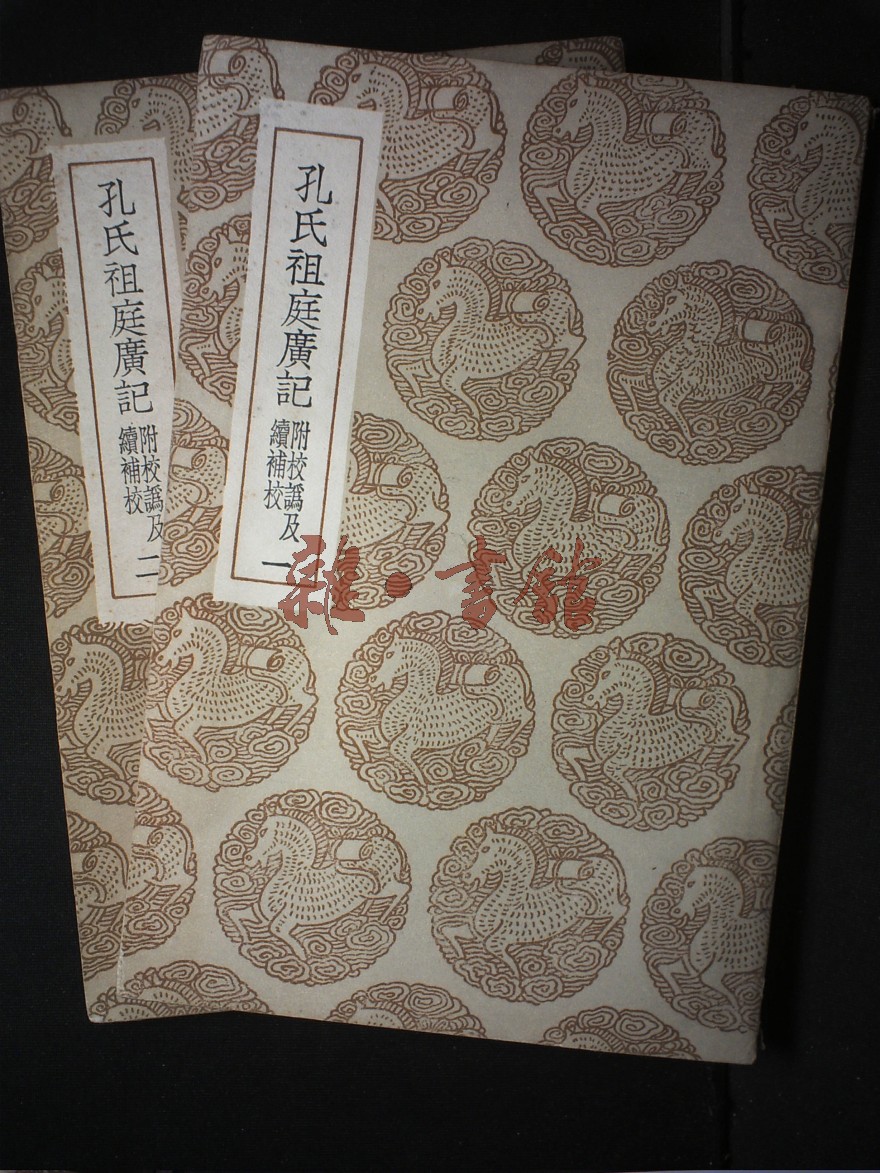 孔氏祖庭廣記
附校譌及
續補校
一
孔氏祖庭廣記
附校譌及
續補校
二
雜·書館